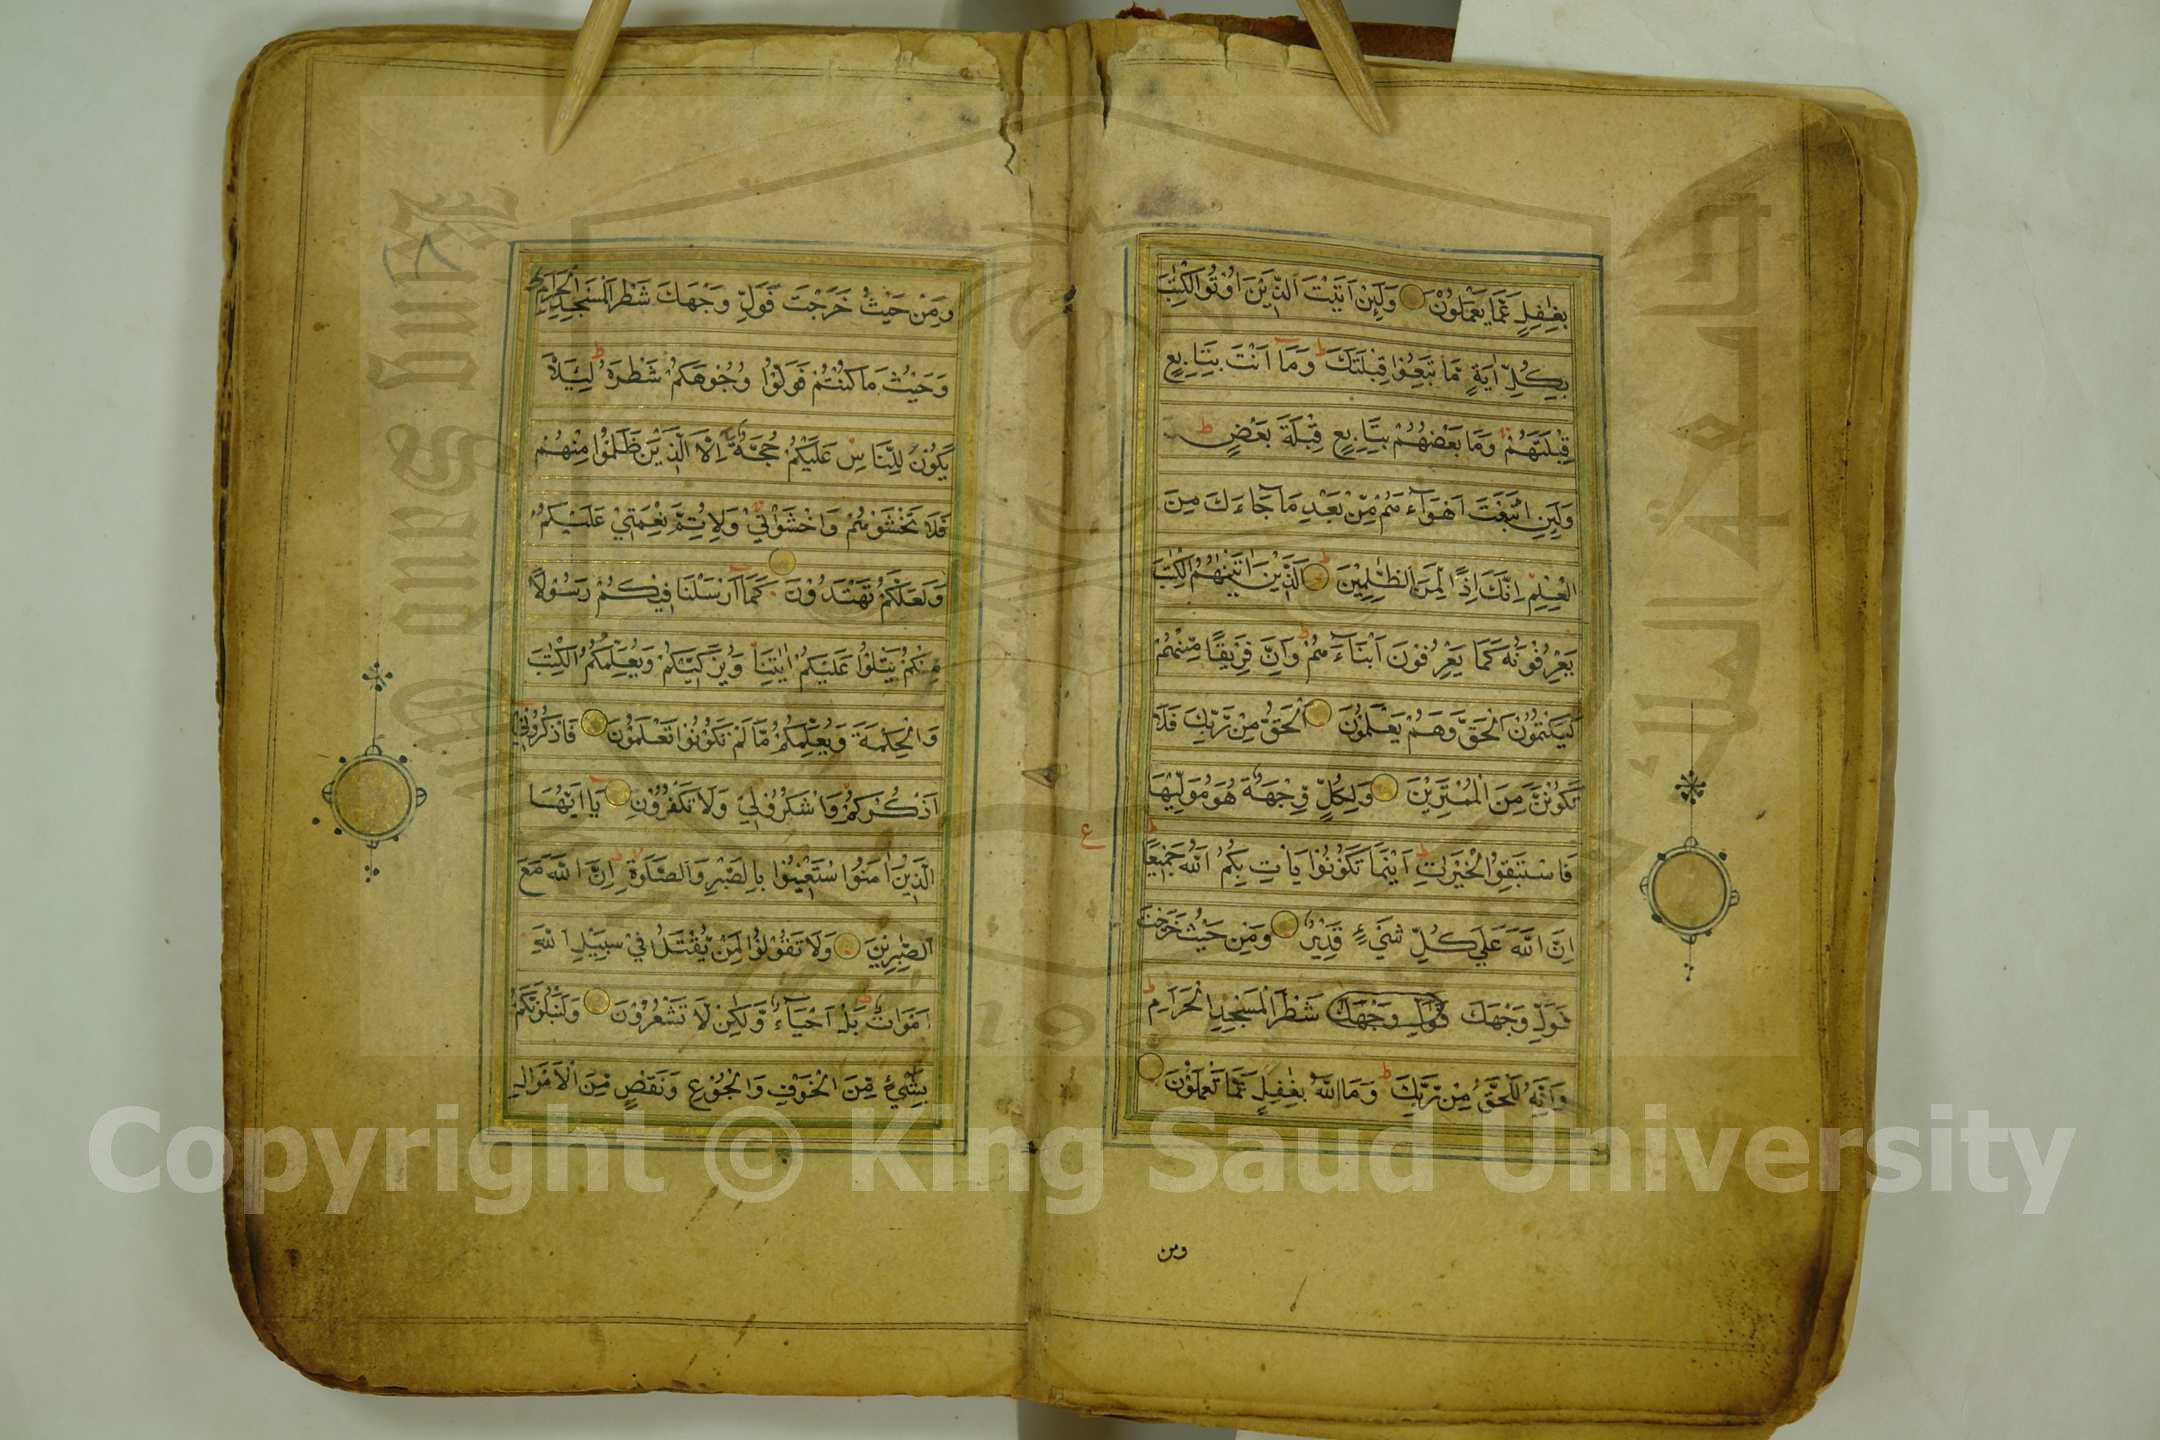 بِغَافِلٍ عَمَّا يَعْمَلُوْنَ وَلَئِنْ اَتَيْتَ الَّذِيْنَ اُوْتُوا الْكِتٰبَ
بِكُلِّ اٰيَةٍ مَّا تَبِعُوْا قِبْلَتَكَ ط وَمَآ اَنْتَ بِتَابِعٍ
قِبْلَتَهُمْ وَمَا بَعْضُهُمْ بِتَابِعٍ قِبْلَةَ بَعْضٍ ط
وَلَئِنِ اتَّبَعْتَ اَهْوَآءَ هُمْ مِّنْ بَعْدِ مَا جَآءَكَ مِنَ
الْعِلْمِ اِنَّكَ اِذًا لَّمِنَ الظّٰلِمِيْنَ ط اَلَّذِيْنَ اٰتَيْنٰهُمُ الْكِتٰبَ
يَعْرِفُوْنَهٗ كَمَا يَعْرِفُوْنَ اَبْنَآءَ هُمْ ط وَاِنَّ فَرِيْقًا مِّنْهُمْ
لَيَكْتُمُوْنَ الْحَقَّ وَهُمْ يَعْلَمُوْنَ اَلْحَقُّ مِنْ رَّبِّكَ فَلَا
تَكُوْنَنَّ مِنَ الْمُمْتَرِيْنَ وَلِكُلٍّ وِّجْهَةٌ هُوَ مُوَلِّيْهَا
فَاسْتَبِقُوا الْخَيْرٰتِ ط اَيْنَمَا تَكُوْنُوْا يَأْتِ بِكُمُ اللّٰهُ جَمِيْعًا ط
اِنَّ اللّٰهَ عَلٰى كُلِّ شَيْءٍ قَدِيْرٌ وَمِنْ حَيْثُ خَرَجْتَ
فَوَلِّ وَجْهَكَ فَوَلِّ وَجْهَكَ شَطْرَ الْمَسْجِدِ الْحَرَامِ ط
وَاِنَّهٗ لَلْحَقُّ مِنْ رَّبِّكَ ط وَمَا اللّٰهُ بِغَافِلٍ عَمَّا تَعْمَلُوْنَ
ع
ومن
وَمِنْ حَيْثُ خَرَجْتَ فَوَلِّ وَجْهَكَ شَطْرَ الْمَسْجِدِ الْحَرَامِ
وَحَيْثُ مَا كُنْتُمْ فَوَلُّوْا وُجُوْهَكُمْ شَطْرَهٗ ط لِئَلَّا
يَكُوْنَ لِلنَّاسِ عَلَيْكُمْ حُجَّةٌ اِلَّا الَّذِيْنَ ظَلَمُوْا مِنْهُمْ
فَلَا تَخْشَوْهُمْ وَاخْشَوْنِيْ وَلِاُتِمَّ نِعْمَتِيْ عَلَيْكُمْ
وَلَعَلَّكُمْ تَهْتَدُوْنَ كَمَآ اَرْسَلْنَا فِيْكُمْ رَسُوْلًا
مِّنْكُمْ يَتْلُوْا عَلَيْكُمْ اٰيٰتِنَا وَيُزَكِّيْكُمْ وَيُعَلِّمُكُمُ الْكِتٰبَ
وَالْحِكْمَةَ وَيُعَلِّمُكُمْ مَّا لَمْ تَكُوْنُوْا تَعْلَمُوْنَ فَاذْكُرُوْنِيْ
اَذْكُرْكُمْ وَاشْكُرُوْا لِيْ وَلَا تَكْفُرُوْنِ يَا اَيُّهَا
الَّذِيْنَ اٰمَنُوا اسْتَعِيْنُوْا بِالصَّبْرِ وَالصَّلٰوةِ ط اِنَّ اللّٰهَ مَعَ
الصّٰبِرِيْنَ وَلَا تَقُوْلُوْا لِمَنْ يُّقْتَلُ فِيْ سَبِيْلِ اللّٰهِ
اَمْوَاتٌ ط بَلْ اَحْيَآءٌ وَّلٰكِنْ لَّا تَشْعُرُوْنَ وَلَنَبْلُوَنَّكُمْ
بِشَيْءٍ مِّنَ الْخَوْفِ وَالْجُوْعِ وَنَقْصٍ مِّنَ الْاَمْوَالِ
جامعة الملك سعود
King Saud
1957
Copyright © King Saud University